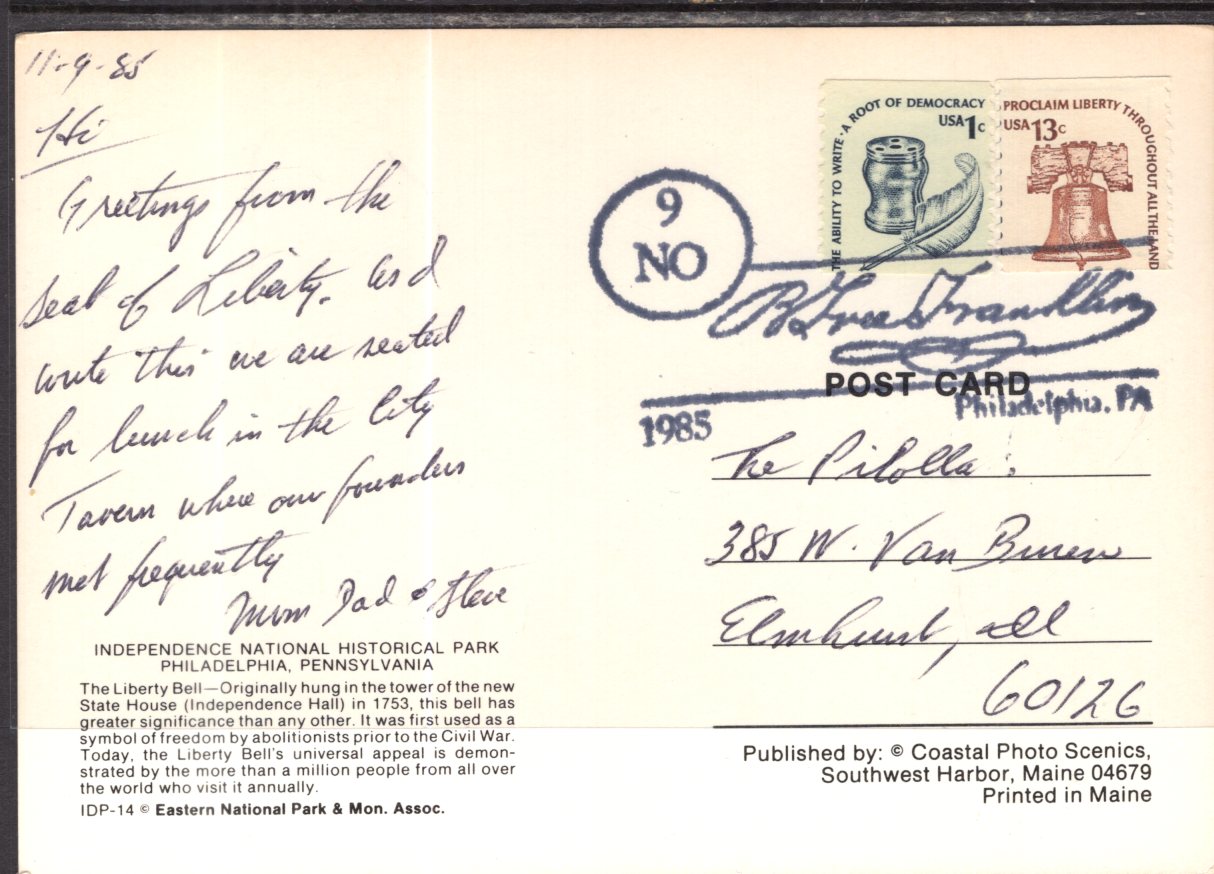 11-9-85
Hi
Greetings from the
seat of Liberty. As I
write this we are seated
for lunch in the City
Tavern where our founders
met frequently
Mom Dad & Steve
INDEPENDENCE NATIONAL HISTORICAL PARK
PHILADELPHIA, PENNSYLVANIA
The Liberty Bell—Originally hung in the tower of the new
State House (Independence Hall) in 1753, this bell has
greater significance than any other. It was first used as a
symbol of freedom by abolitionists prior to the Civil War.
Today, the Liberty Bell's universal appeal is demon-
strated by the more than a million people from all over
the world who visit it annually.
IDP-14 © Eastern National Park & Mon. Assoc.
THE ABILITY TO WRITE·A ROOT OF DEMOCRACY
USA 1c
PROCLAIM LIBERTY THROUGHOUT ALL THE LAND
USA 13c
9
NO
B Free Franklin
POST CARD
Philadelphia, PA
1985
The Pilolla
385 W. Van Buren
Elmhurst, Ill
60126
Published by: © Coastal Photo Scenics,
Southwest Harbor, Maine 04679
Printed in Maine